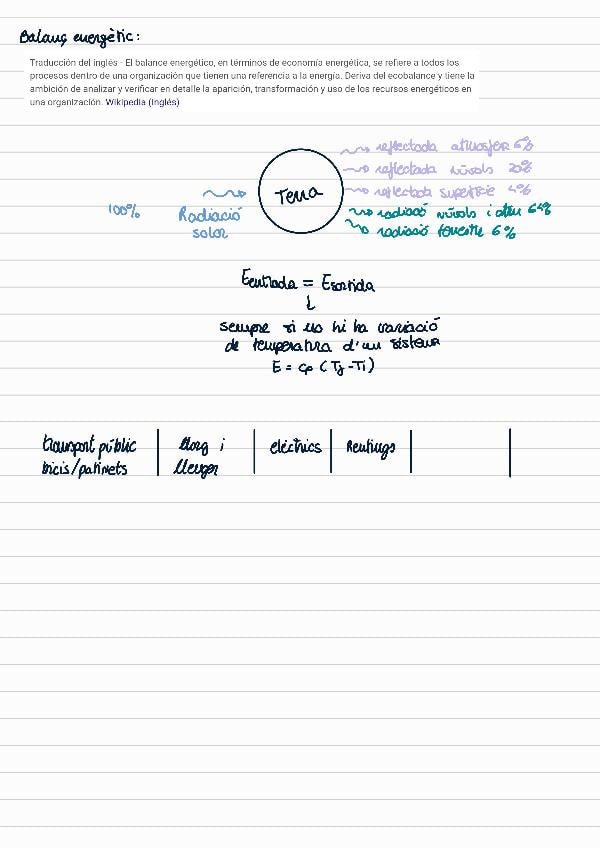 Balanç energètic:
Traducción del inglés - El balance energético, en términos de economía energética, se refiere a todos los
procesos dentro de una organización que tienen una referencia a la energía. Deriva del ecobalance y tiene la
ambición de analizar y verificar en detalle la aparición, transformación y uso de los recursos energéticos en
una organización. Wikipedia (Inglés)
reflectada atmosfera 6%
reflectada núvols 20%
reflectada superfície 4%
100% Radiació
solar
Terra
radiació núvols i atm 64%
radiació terrestre 6%
Eentrada = Esortida
↓
sempre si no hi ha variació
de temperatura d'un sistema
E = cp (Tf - Ti)
transport públic
bicis/patinets
llarg i
lleuger
elèctrics
Rentings